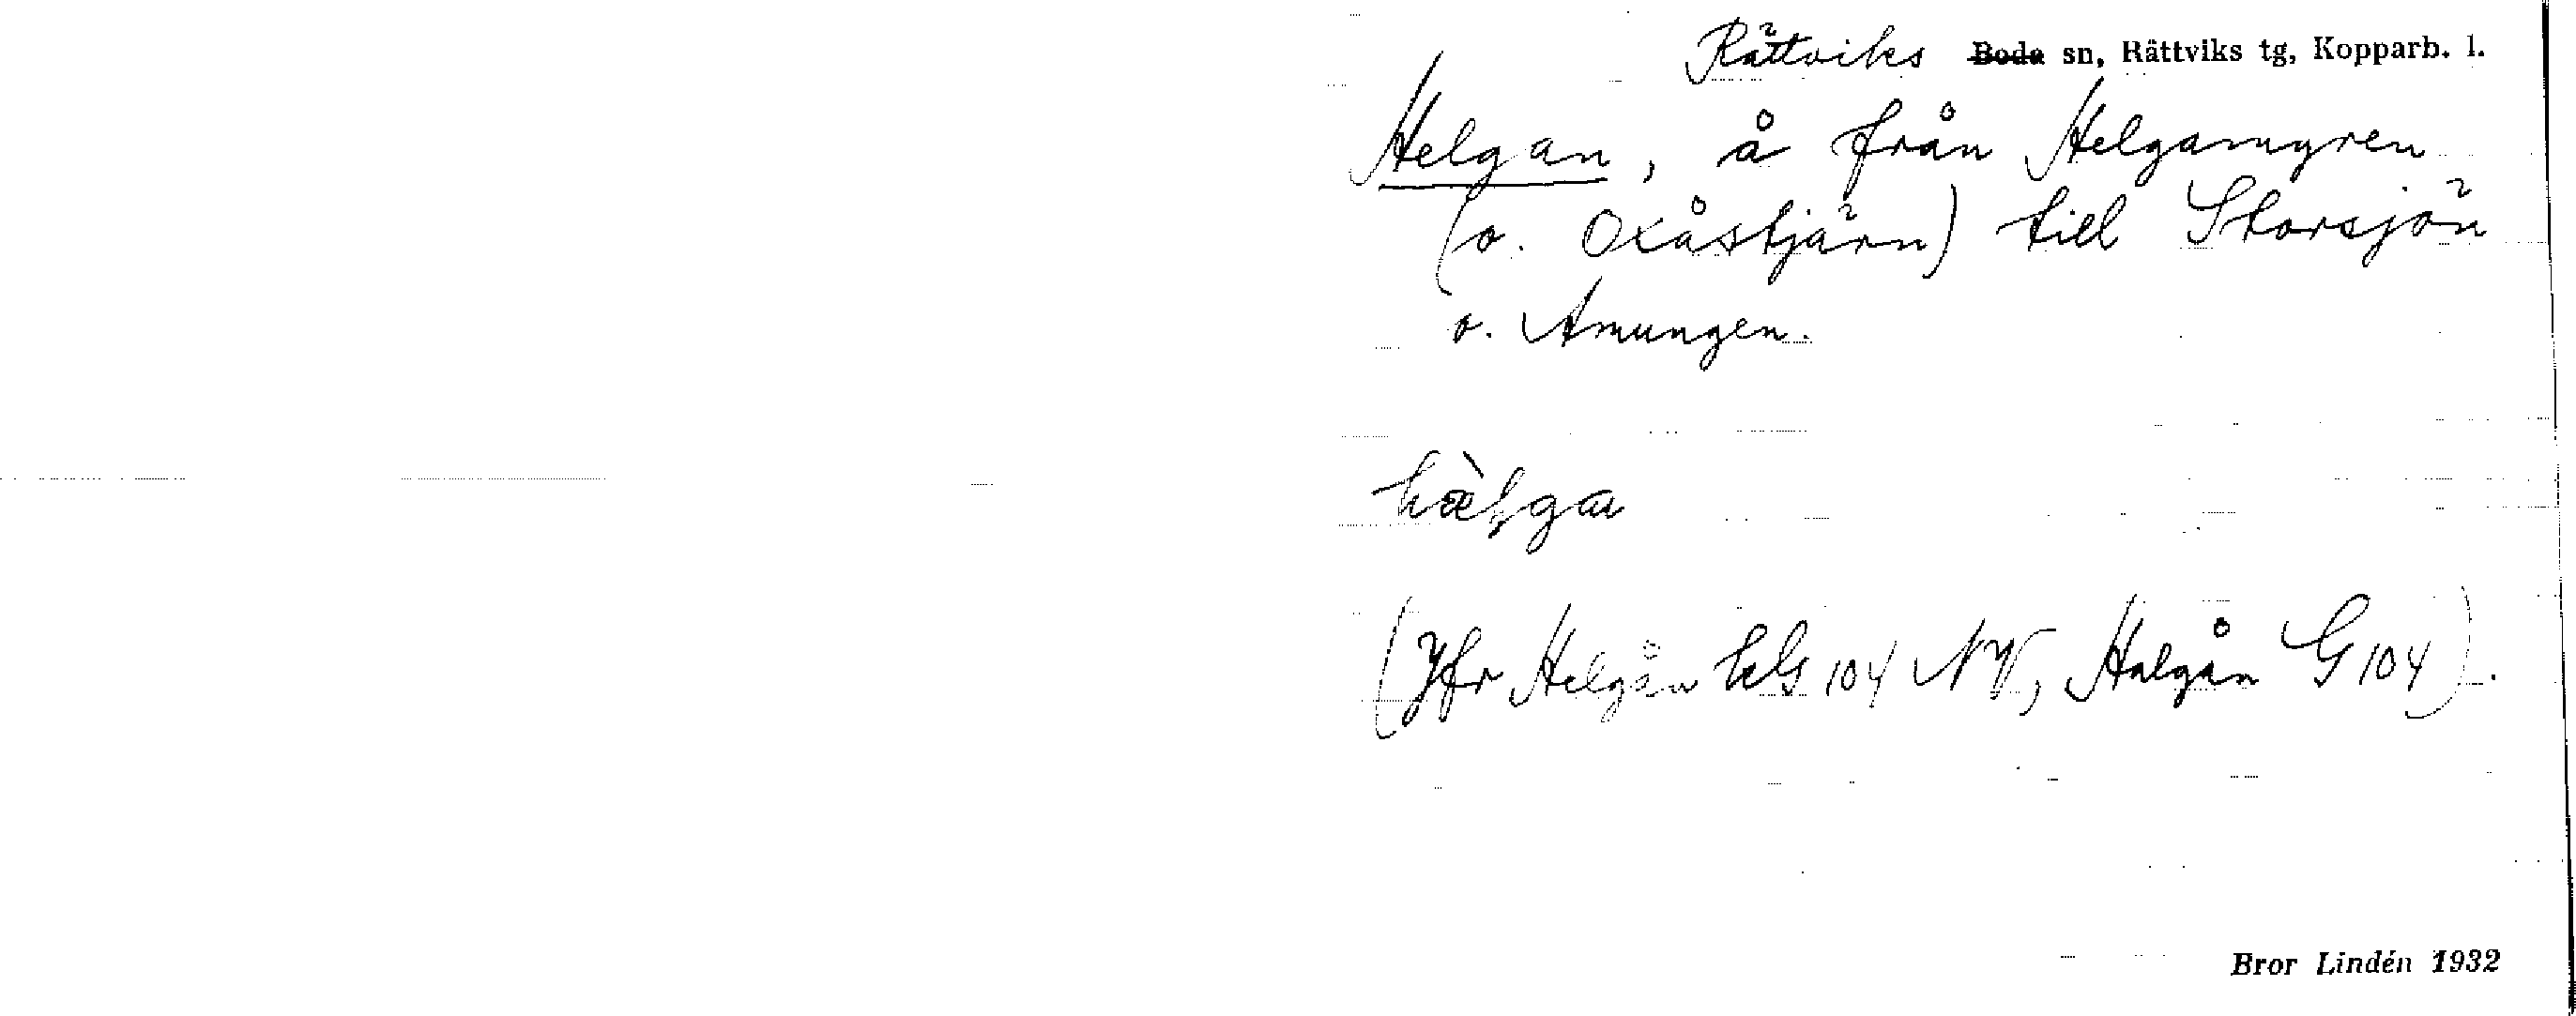 Rättviks Boda sn, Rättviks tg, Kopparb. l.
Helgan, å från Helgamyren
(o. Oxåstjärn) till Storsjön
o. Amungen.
hæ̀lga
(Jfr Helgån hlG 104 NV, Halgån G 104).
Bror Lindén 1932